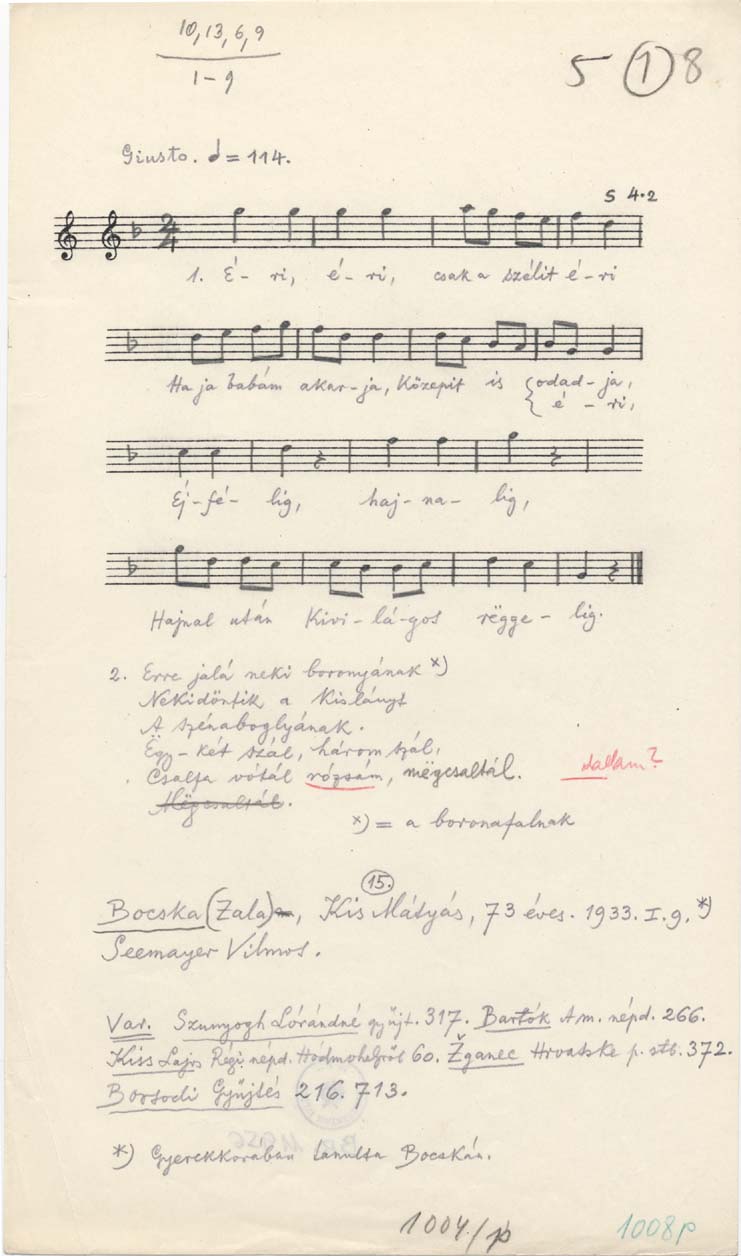 10, 13, 6, 9
1-9
5 (1) 8
Giusto. = 114.
S 4.2
2
4
1. É- ri, é- ri, csak a szélit é-ri
Ha ja babám akar-ja, Közepit is { odad-ja,
{ é - ri,
Éj-fé- lig, haj-na- lig,
Hajnal után Kivi-lá-gos rëgge- lig.
2. Erre jalá neki boronyának x)
Nekidöntik a kislányt
A szénaboglyának.
Ëgy-két szál, három szál,
Csalfa vótál rózsám, mëgcsaltál.
dallam?
Mëgcsaltál.
x) = a boronafalnak
15.
Bocska (Zala), Kis Mátyás, 73 éves. 1933. I. 9. *)
Seemayer Vilmos.
Var. Szunyogh Lórándné gyűjt. 317. Bartók A m. népd. 266.
Kiss Lajos Régi népd. Hódmvhelyről 60. Žganec Hrvatske p. stb. 372.
Borsodi Gyűjtés 216. 713.
*) Gyerekkorában tanulta Bocskán.
1004/p
1008p